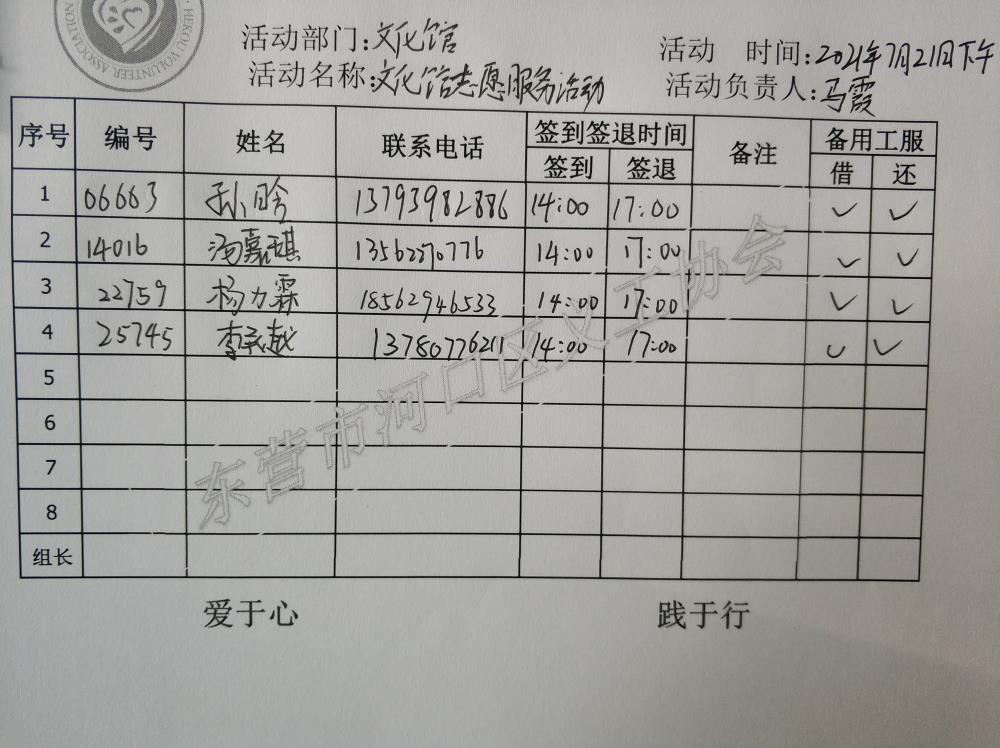 HEKOU VOLUNTEER ASSOCIATION
活动部门:文化馆
活动 时间:2021年7月21日下午
活动名称:文化馆志愿服务活动
活动负责人:马霞
序号 编号 姓名 联系电话 签到签退时间 备注 备用工服
签到 签退 借 还
1 06663 孙晗 13793982886 14:00 17:00 ✓ ✓
2 14016 汤嘉琪 13562270776 14:00 17:00 ✓ ✓
3 22759 杨力霖 18562946533 14:00 17:00 ✓ ✓
4 25745 李承越 13780776211 14:00 17:00 ✓ ✓
5
6
7
8
组长
东营市河口区义工协会
爱于心 践于行